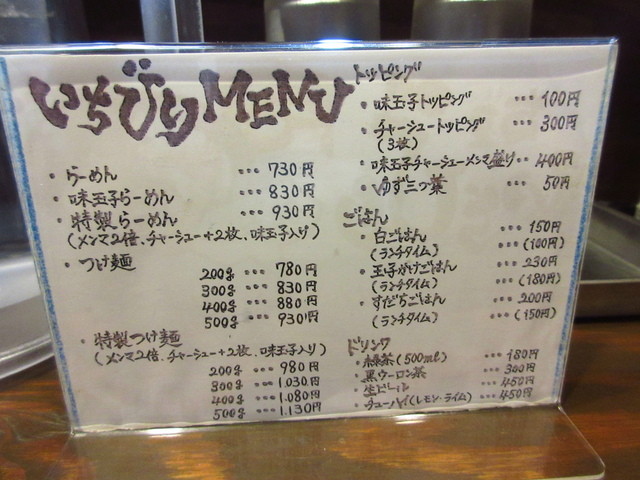 いちびり MENU
・らーめん ・・・730円
・味玉子らーめん ・・・830円
・特製らーめん ・・・930円
(メンマ2倍、チャーシュー+2枚、味玉子入り)
・つけ麺
200g ・・・780円
300g ・・・830円
400g ・・・880円
500g ・・・930円
・特製つけ麺
(メンマ2倍、チャーシュー+2枚、味玉子入り)
200g ・・・980円
300g ・・・1.030円
400g ・・・1.080円
500g ・・・1.130円
トッピング
・味玉子トッピング ・・・100円
・チャーシュートッピング ・・・300円
(3枚)
・味玉子チャーシューメンマ盛り ・・・400円
・ゆず三つ葉 ・・・50円
ごはん
・白ごはん ・・・150円
(ランチタイム) ・・・(100円)
・玉子かけごはん ・・・230円
(ランチタイム) ・・・(180円)
・すだちごはん ・・・200円
(ランチタイム) ・・・(150円)
ドリンク
・緑茶(500ml) ・・・180円
・黒ウーロン茶 ・・・300円
・生ビール ・・・450円
・チューハイ(レモン・ライム) ・・・450円